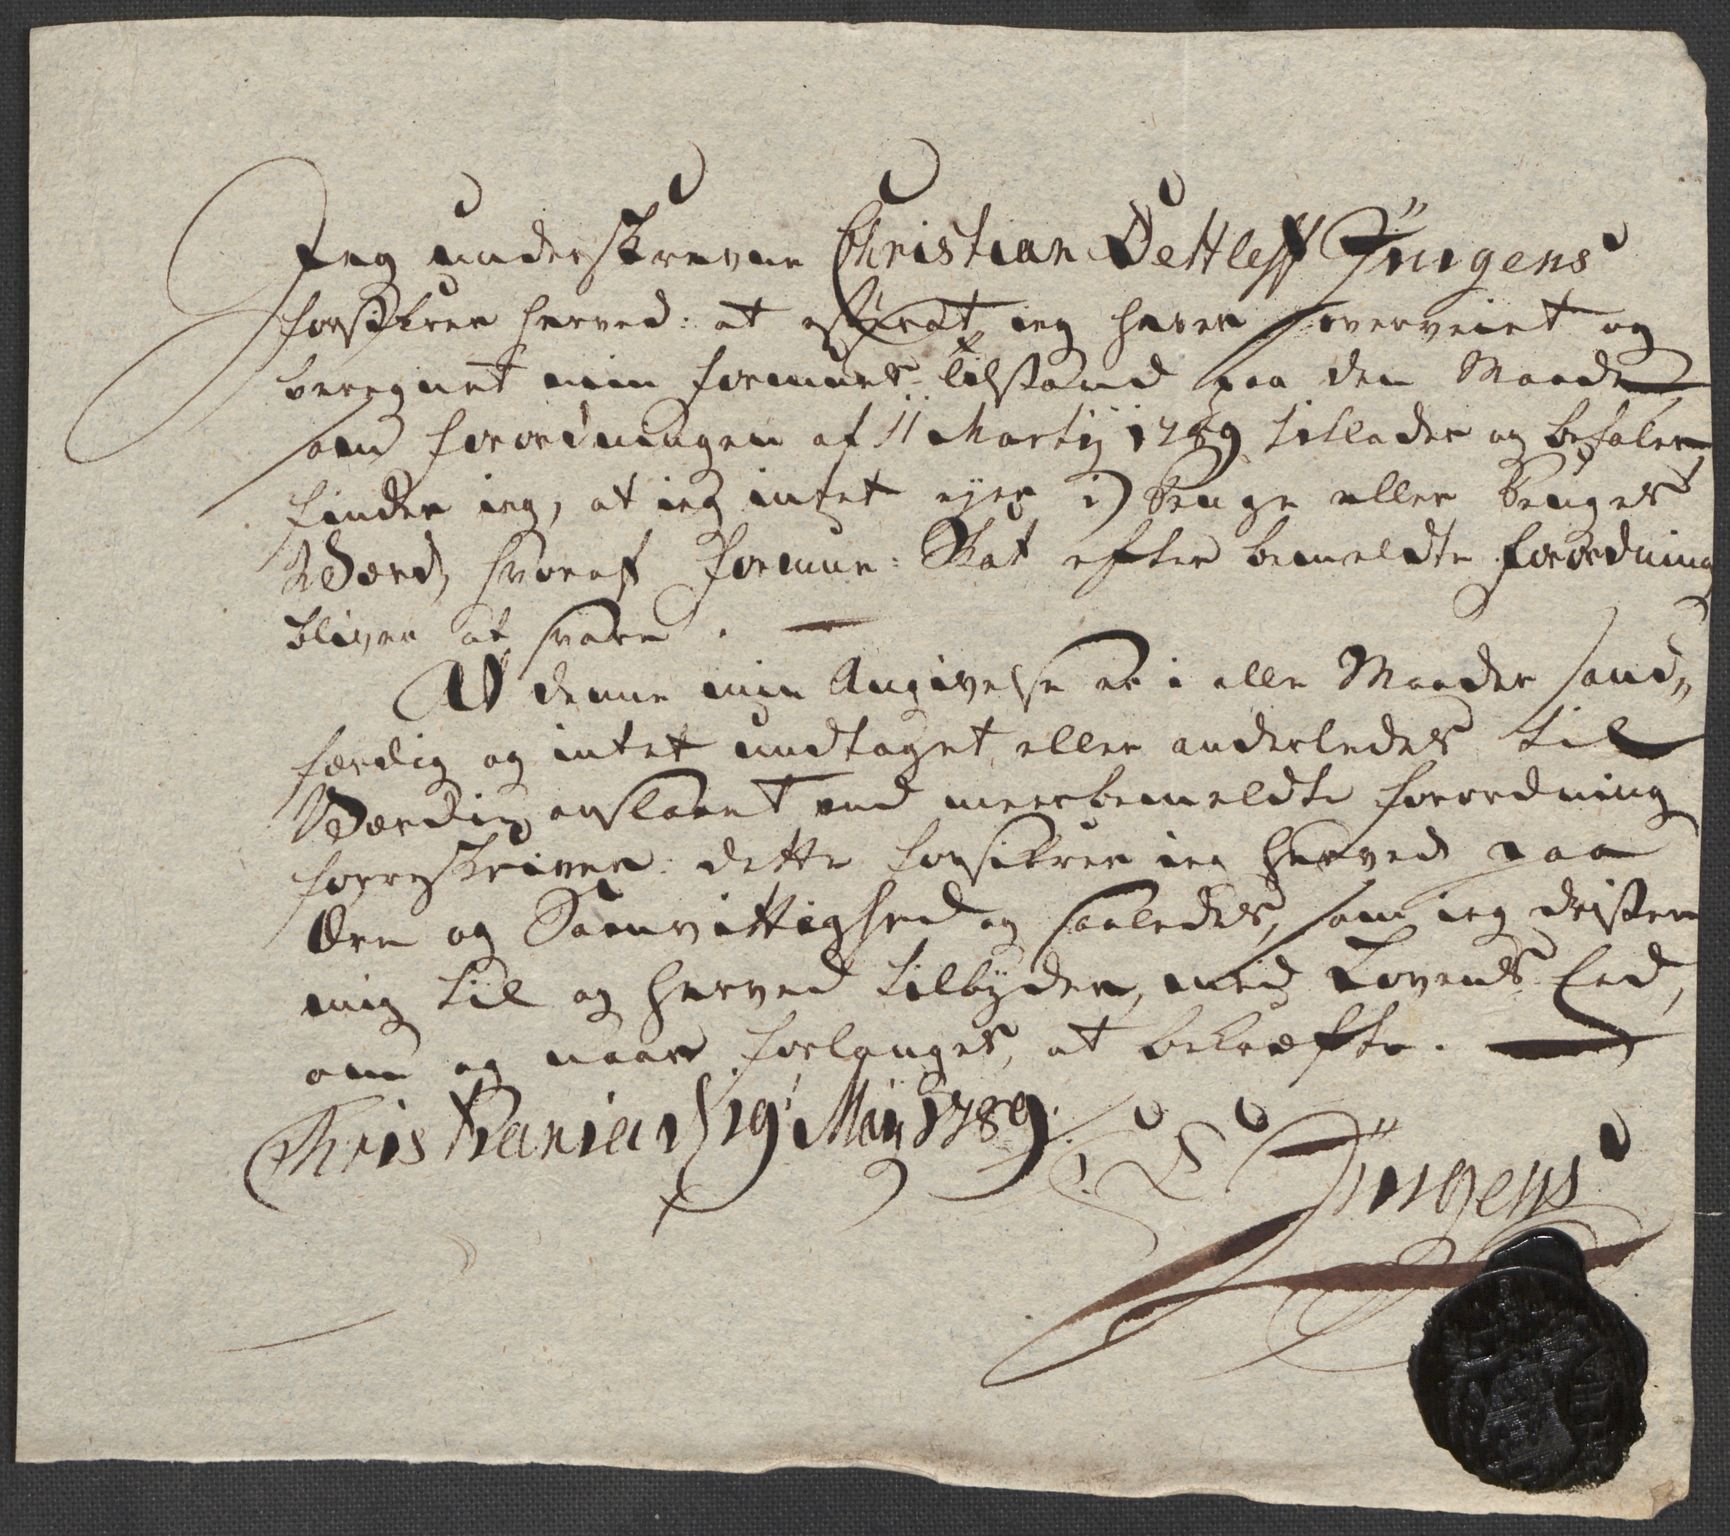 Jeg underskrevne Christian Dettleff Jürgens
forsikrer herved: at efterat ieg haver overveiet og
beregnet min Formues-Tilstand paa den Maade
som Forordningen af 11 Martij 1789 tillader og befaler,
finder ieg, at ieg intet eyer i Penge eller Penges
Værd, hvoraf Formue-Skat efter bemeldte Forordning
bliver at svare. —
At denne min Angivelse er i alle Maader sand-
færdig og intet undtaget, eller anderledes til
Værdie anslaaet end meerbemeldte Forordning
foreskriver: dette forsikrer ieg herved paa
Ære og Samvittighed og saaledes, som ieg drister
mig til og herved tilbyder, med Lovens Eed,
om og naar forlanges, at bekræfte. —
Christiania d 19 May 1789.
C. D. Jürgens